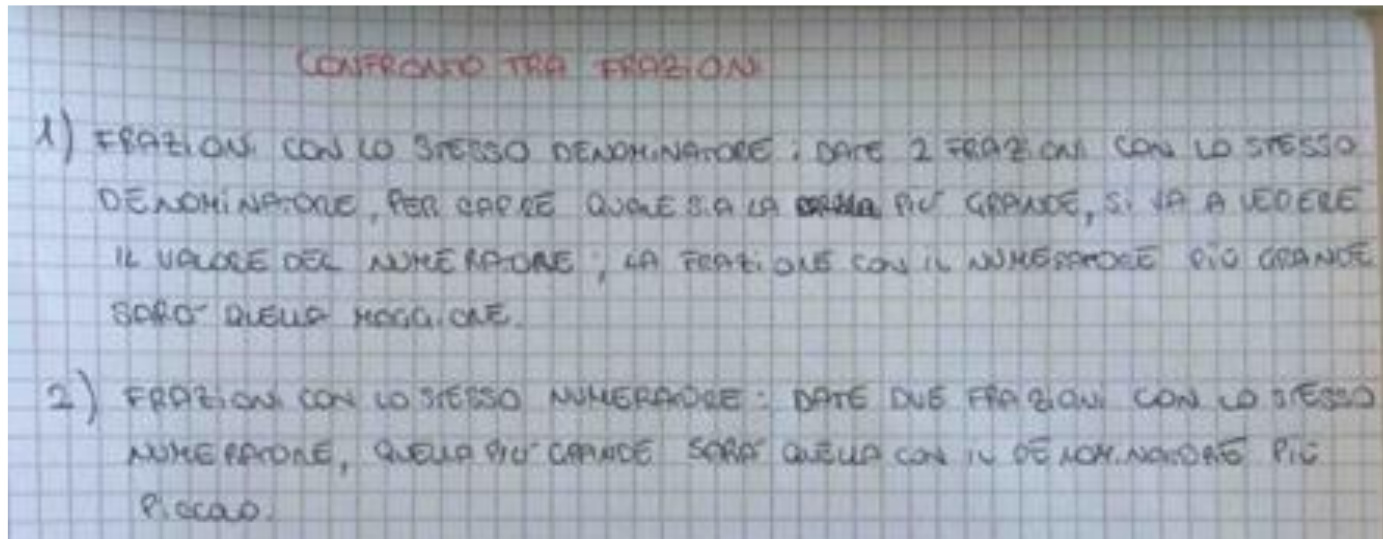 CONFRONTO TRA FRAZIONI
1) FRAZIONI CON LO STESSO DENOMINATORE: DATE 2 FRAZIONI CON LO STESSO
DENOMINATORE, PER CAPIRE QUALE SIA LA PIÙ GRANDE, SI VA A VEDERE
IL VALORE DEL NUMERATORE; LA FRAZIONE CON IL NUMERATORE PIÙ GRANDE
SARÀ QUELLA MAGGIORE.
2) FRAZIONI CON LO STESSO NUMERATORE: DATE DUE FRAZIONI CON LO STESSO
NUMERATORE, QUELLA PIÙ GRANDE SARÀ QUELLA CON IL DENOMINATORE PIÙ
PICCOLO.